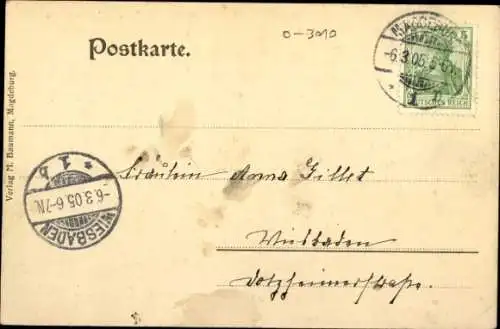 Postkarte.
0-3010
MAGDEBURG
-6.3.05.6-
1
5
DEUTSCHES REICH
Verlag M. Baumann, Magdeburg.
* 1 b
-6.3.05.6-7N.
WIESBADEN
Fräulein Anna Gillet
Wiesbaden
Dotzheimerstraße.